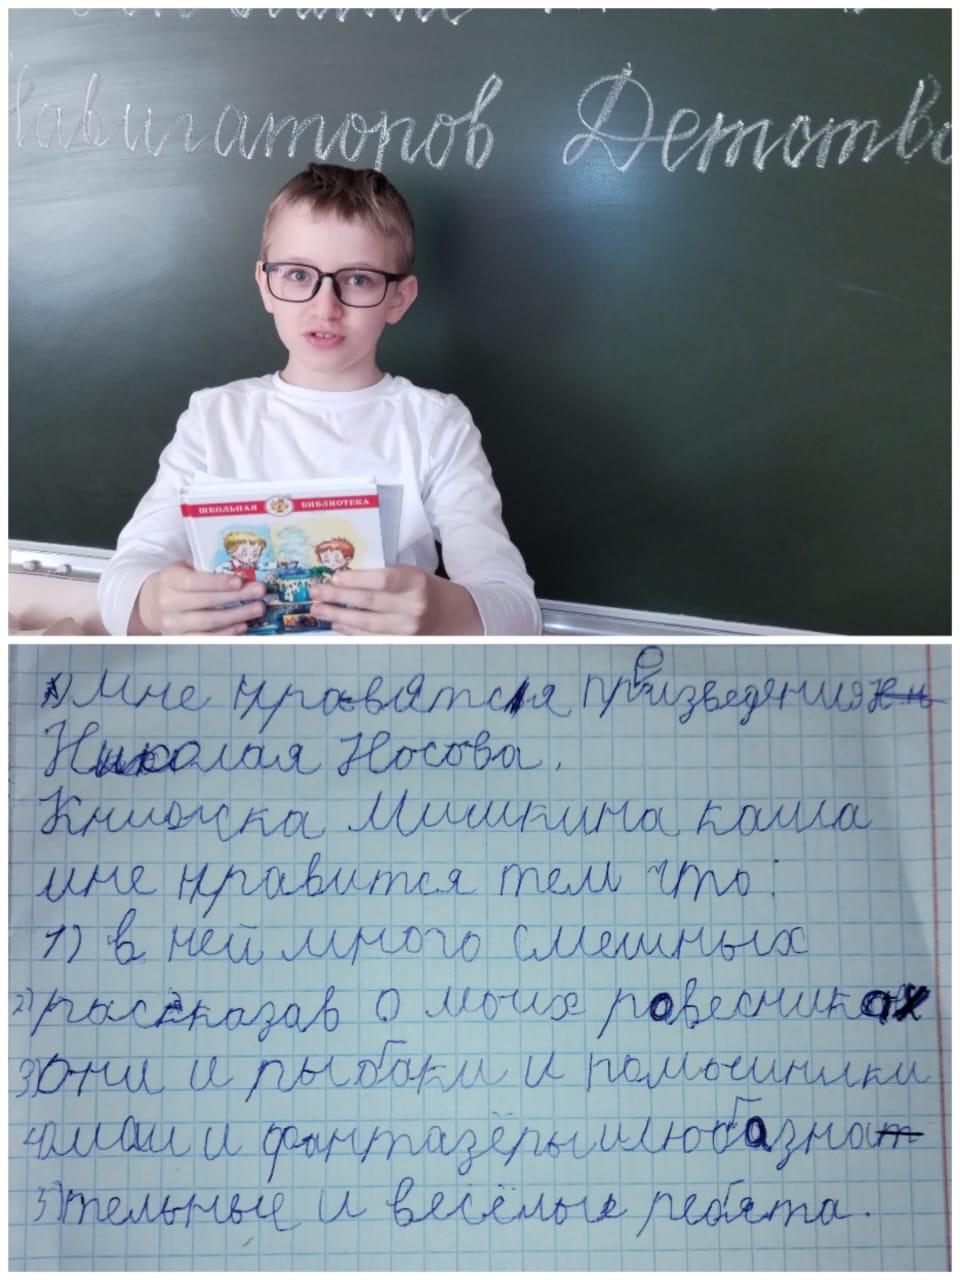 Навигаторов Детства
ШКОЛЬНАЯ БИБЛИОТЕКА
1) Мне нравятся произведения
Николая Носова.
Книжка Мишкина каша
мне нравится тем что:
1) в ней много смешных
2) рассказав о моих ровесниках
3) Они и рыбаки и помочиники
4) мам и фантазёры и любазна
5) тельные и весёлые ребята.